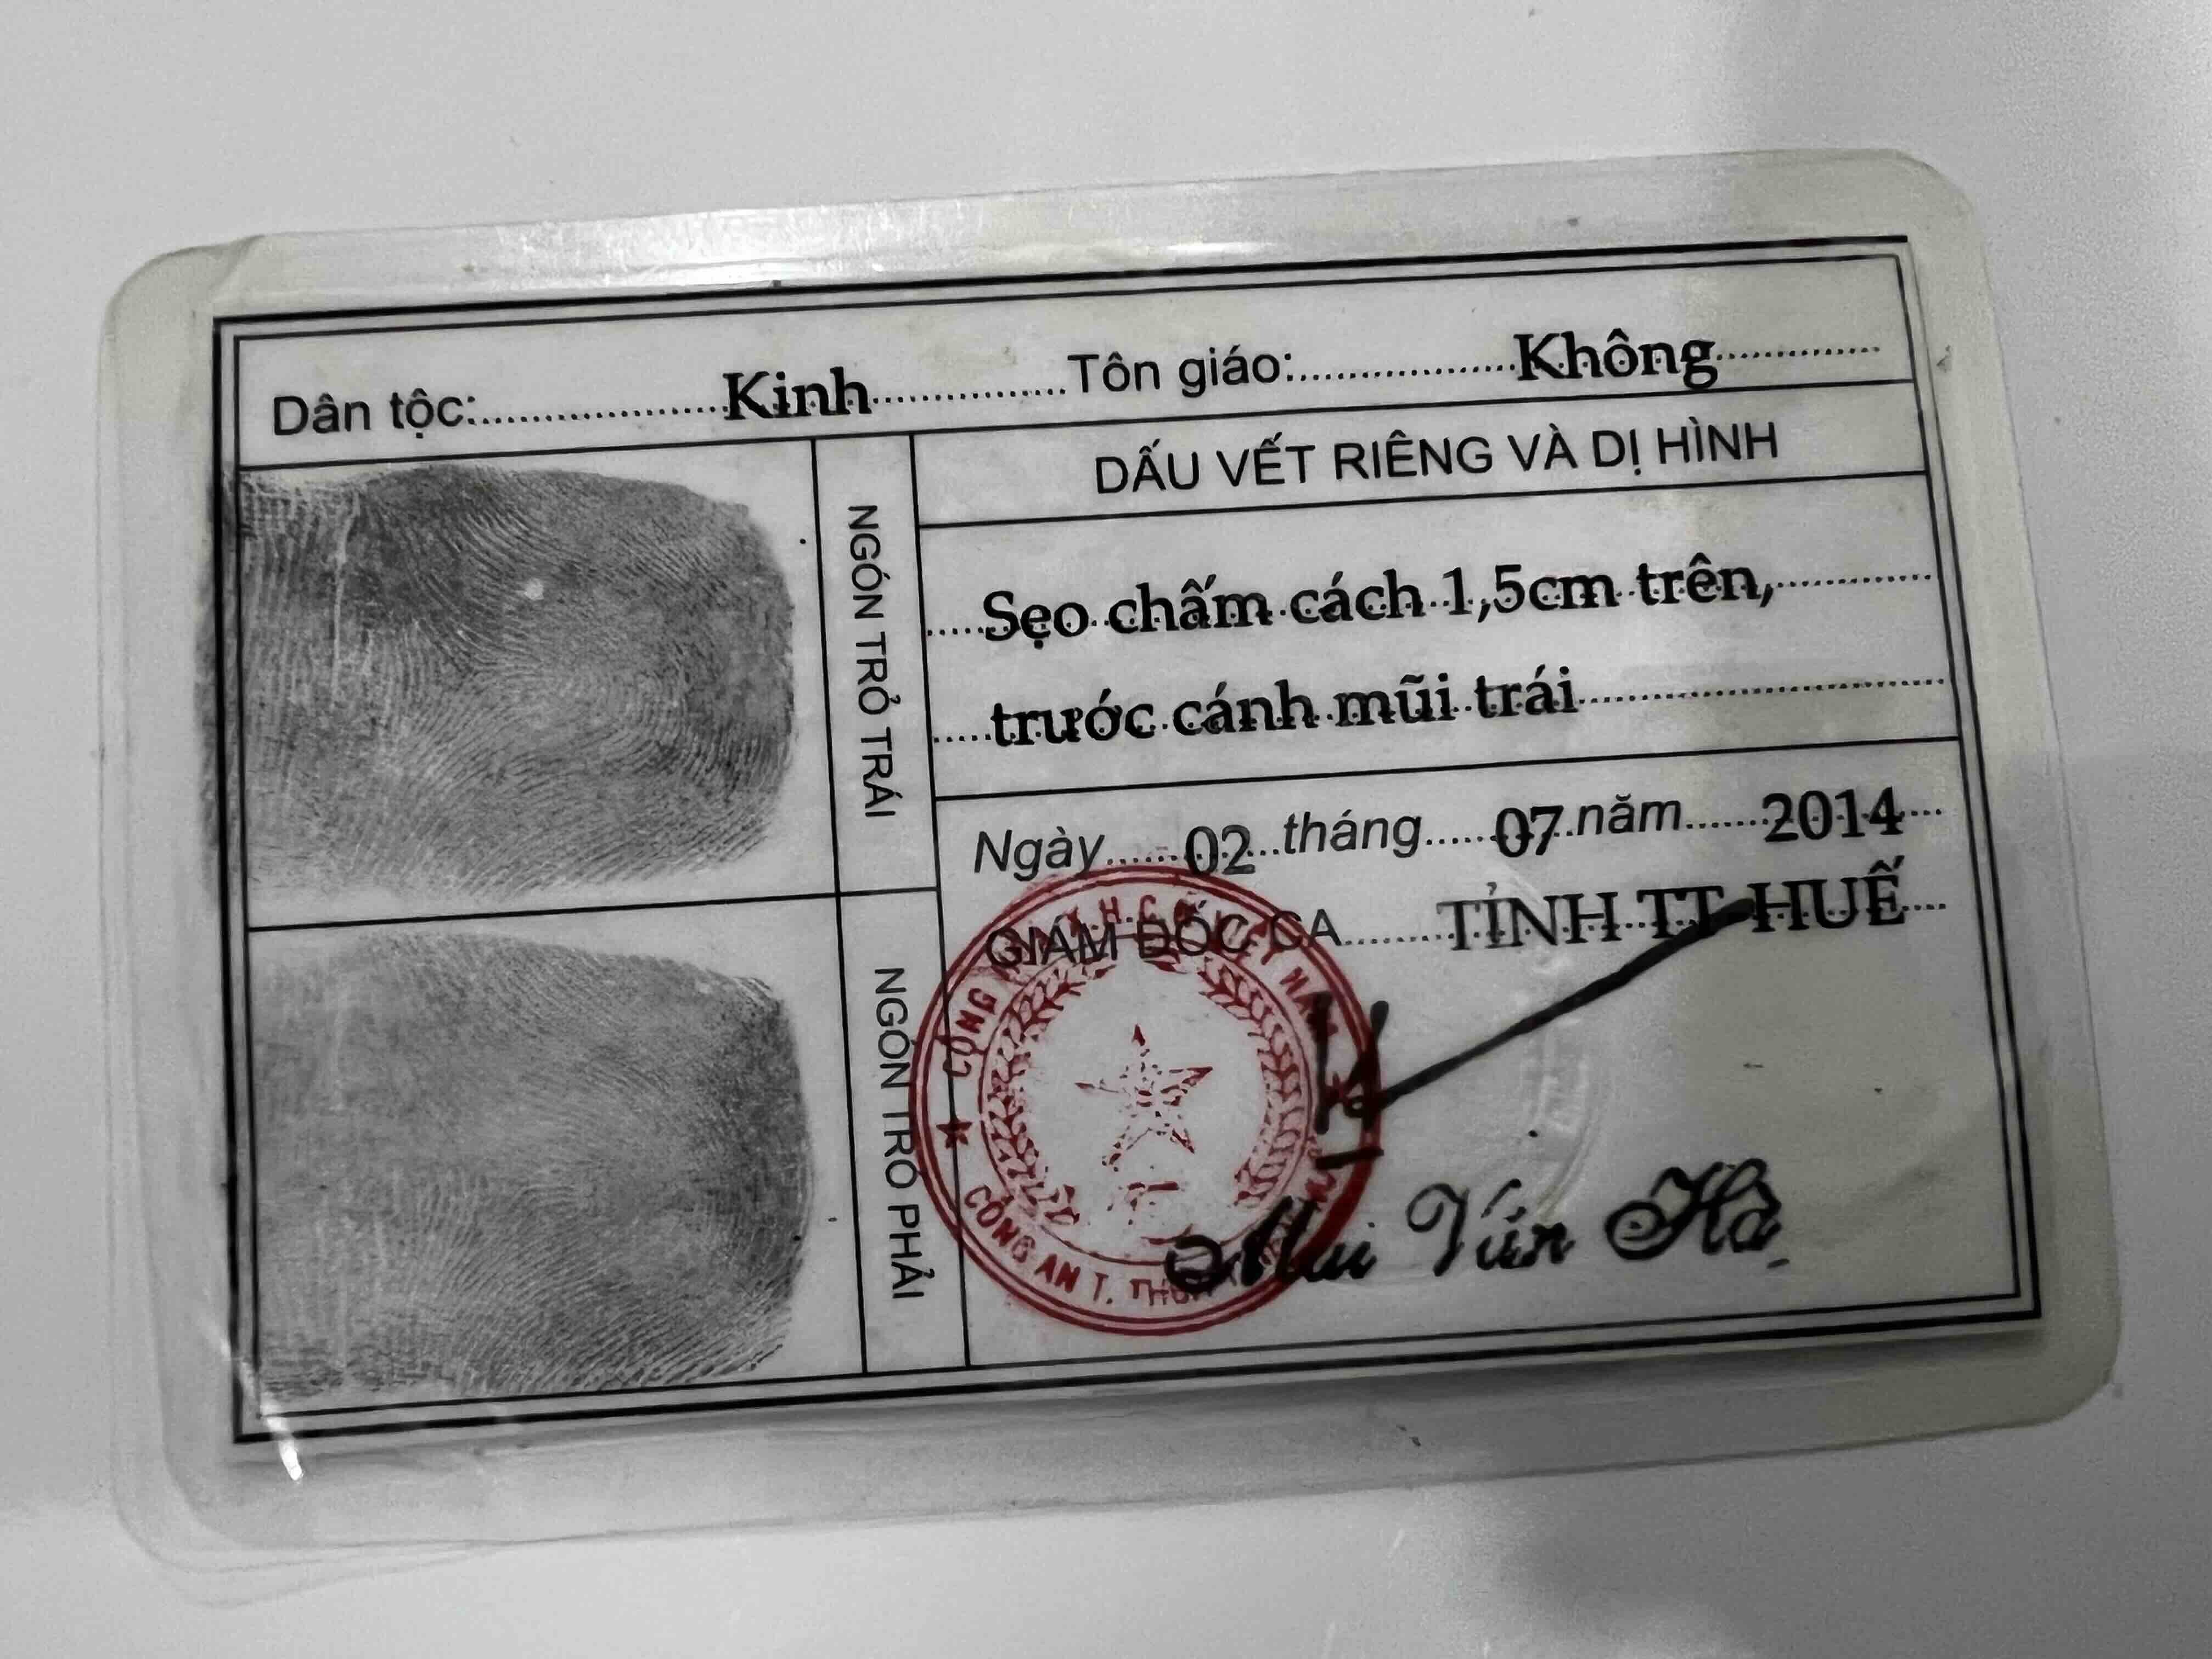 Dân tộc: Kinh Tôn giáo: Không
NGÓN TRỎ TRÁI
NGÓN TRỎ PHẢI
DẤU VẾT RIÊNG VÀ DỊ HÌNH
Sẹo chấm cách 1,5cm trên,
trước cánh mũi trái
Ngày 02 tháng 07 năm 2014
GIÁM ĐỐC CA TỈNH TT HUẾ
CỘNG H.C. NAM
CÔNG AN T. THỪA
Văn Hà